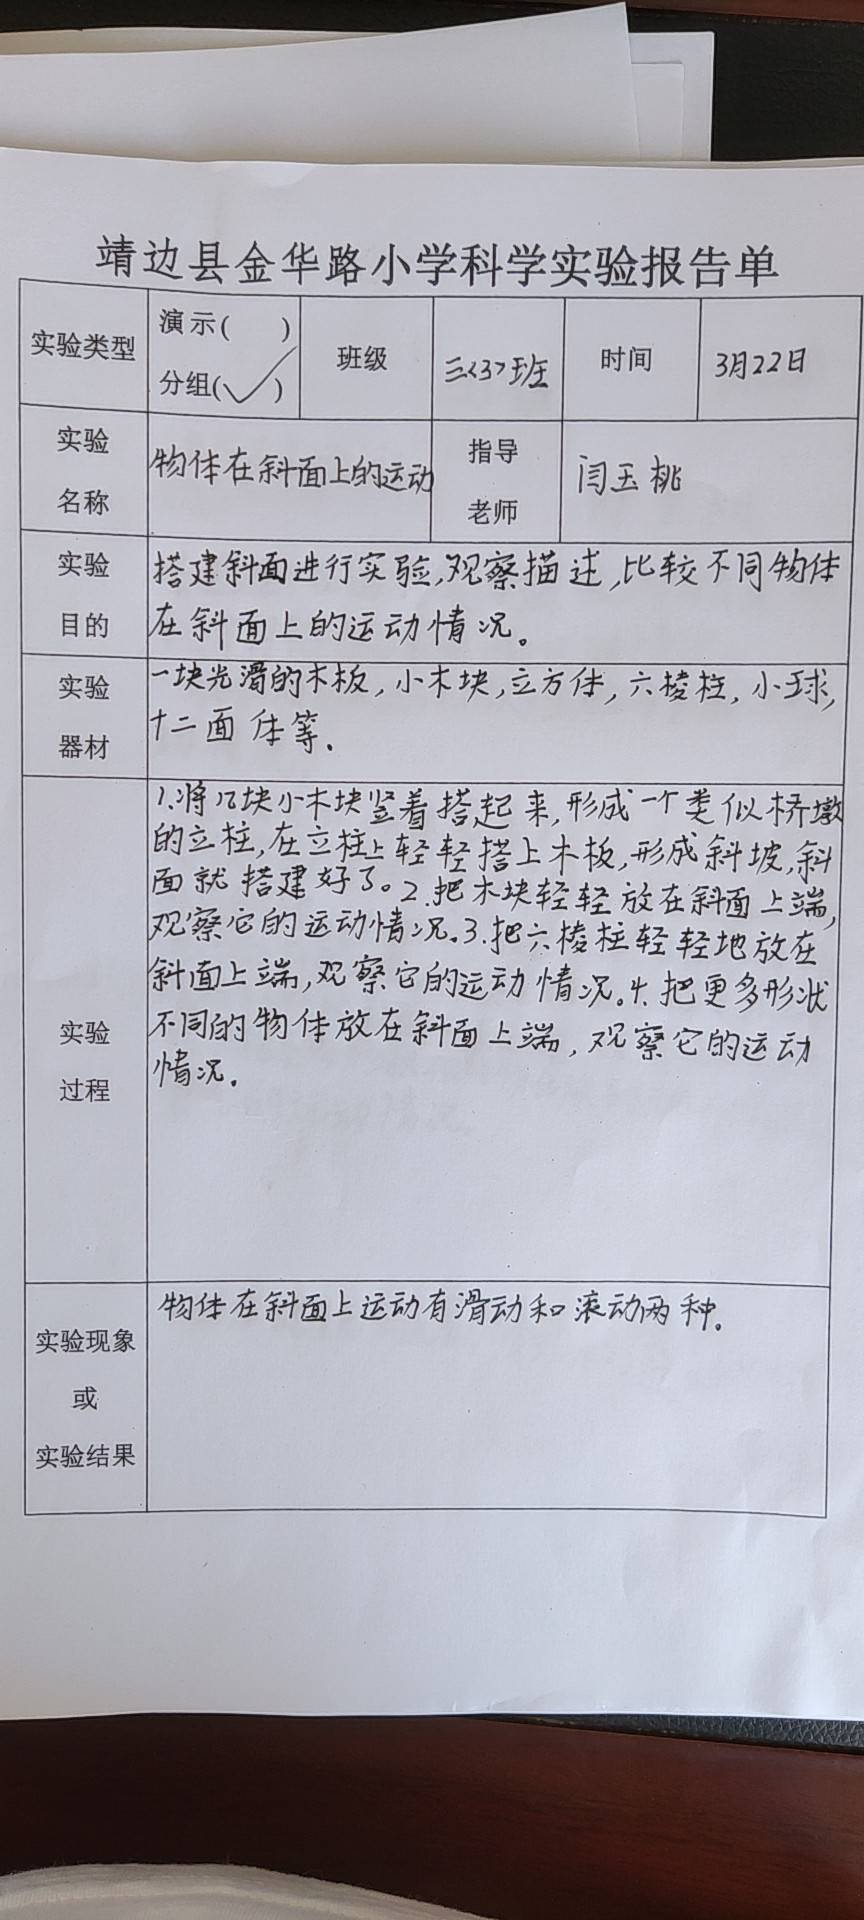 靖边县金华路小学科学实验报告单
实验类型
演示( )
分组(✓)
班级
三<3>班
时间
3月22日
实验
名称
物体在斜面上的运动
指导
老师
闫玉桃
实验
目的
搭建斜面进行实验,观察描述,比较不同物体
在斜面上的运动情况。
实验
器材
一块光滑的木板,小木块,立方体,六棱柱,小球,
十二面体等.
实验
过程
1.将几块小木块竖着搭起来,形成一个类似桥墩
的立柱,在立柱上轻轻搭上木板,形成斜坡,斜
面就搭建好了。2.把木块轻轻放在斜面上端,
观察它的运动情况.3.把六棱柱轻轻地放在
斜面上端,观察它的运动情况.4.把更多形状
不同的物体放在斜面上端,观察它的运动
情况.
实验现象
或
实验结果
物体在斜面上运动有滑动和滚动两种.